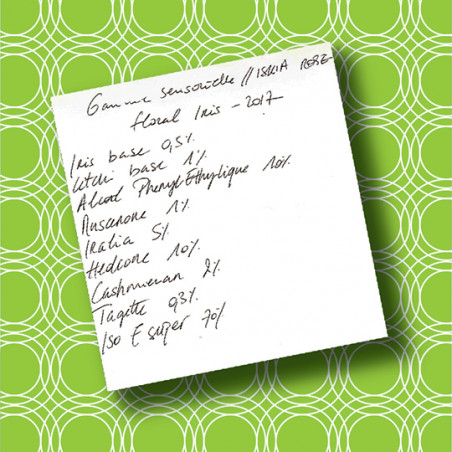 Gamme sensorielle // ISKIA
Floral Iris - 2017
Iris base 0,5%
Litchi base 1%
Alcool Phenyl Ethylique 10%
Muscenone 1%
Iralia 5%
Hedione 10%
Cashmeran 2%
Tagette 0,3%
Iso E super 70%